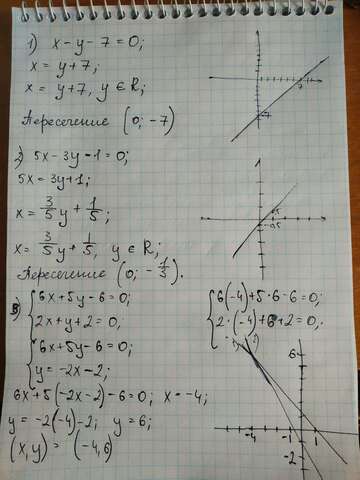 1) x - y - 7 = 0;
x = y + 7;
x = y + 7, y ∈ R;
Пересечение (0; -7)
7
-7
2) 5x - 3y - 1 = 0;
5x = 3y + 1;
x = 3/5 y + 1/5;
x = 3/5 y + 1/5, y ∈ R;
Пересечение (0; -1/3).
0,5
-0,5
3) { 6x + 5y - 6 = 0;
2x + y + 2 = 0;
{ 6x + 5y - 6 = 0;
y = -2x - 2;
6x + 5(-2x - 2) - 6 = 0; x = -4;
y = -2(-4) - 2; y = 6;
(x, y) = (-4, 6)
{ 6(-4) + 5·6 - 6 = 0;
2·(-4) + 6 + 2 = 0;
6
-4 -1 1
-2